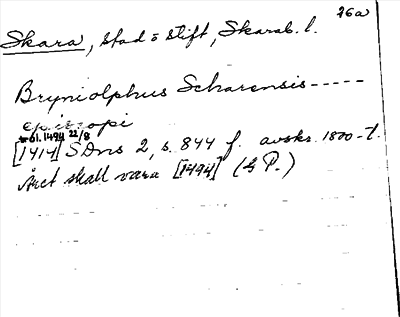 26a
Skara, stad o stift, Skarab. l.
Bryniolphus Scharensis-----
episcopi
61. 1494 22/8
[1414] SDns 2, s. 844 f. avskr. 1800-t.
Året skall vara [1494] (G P.)